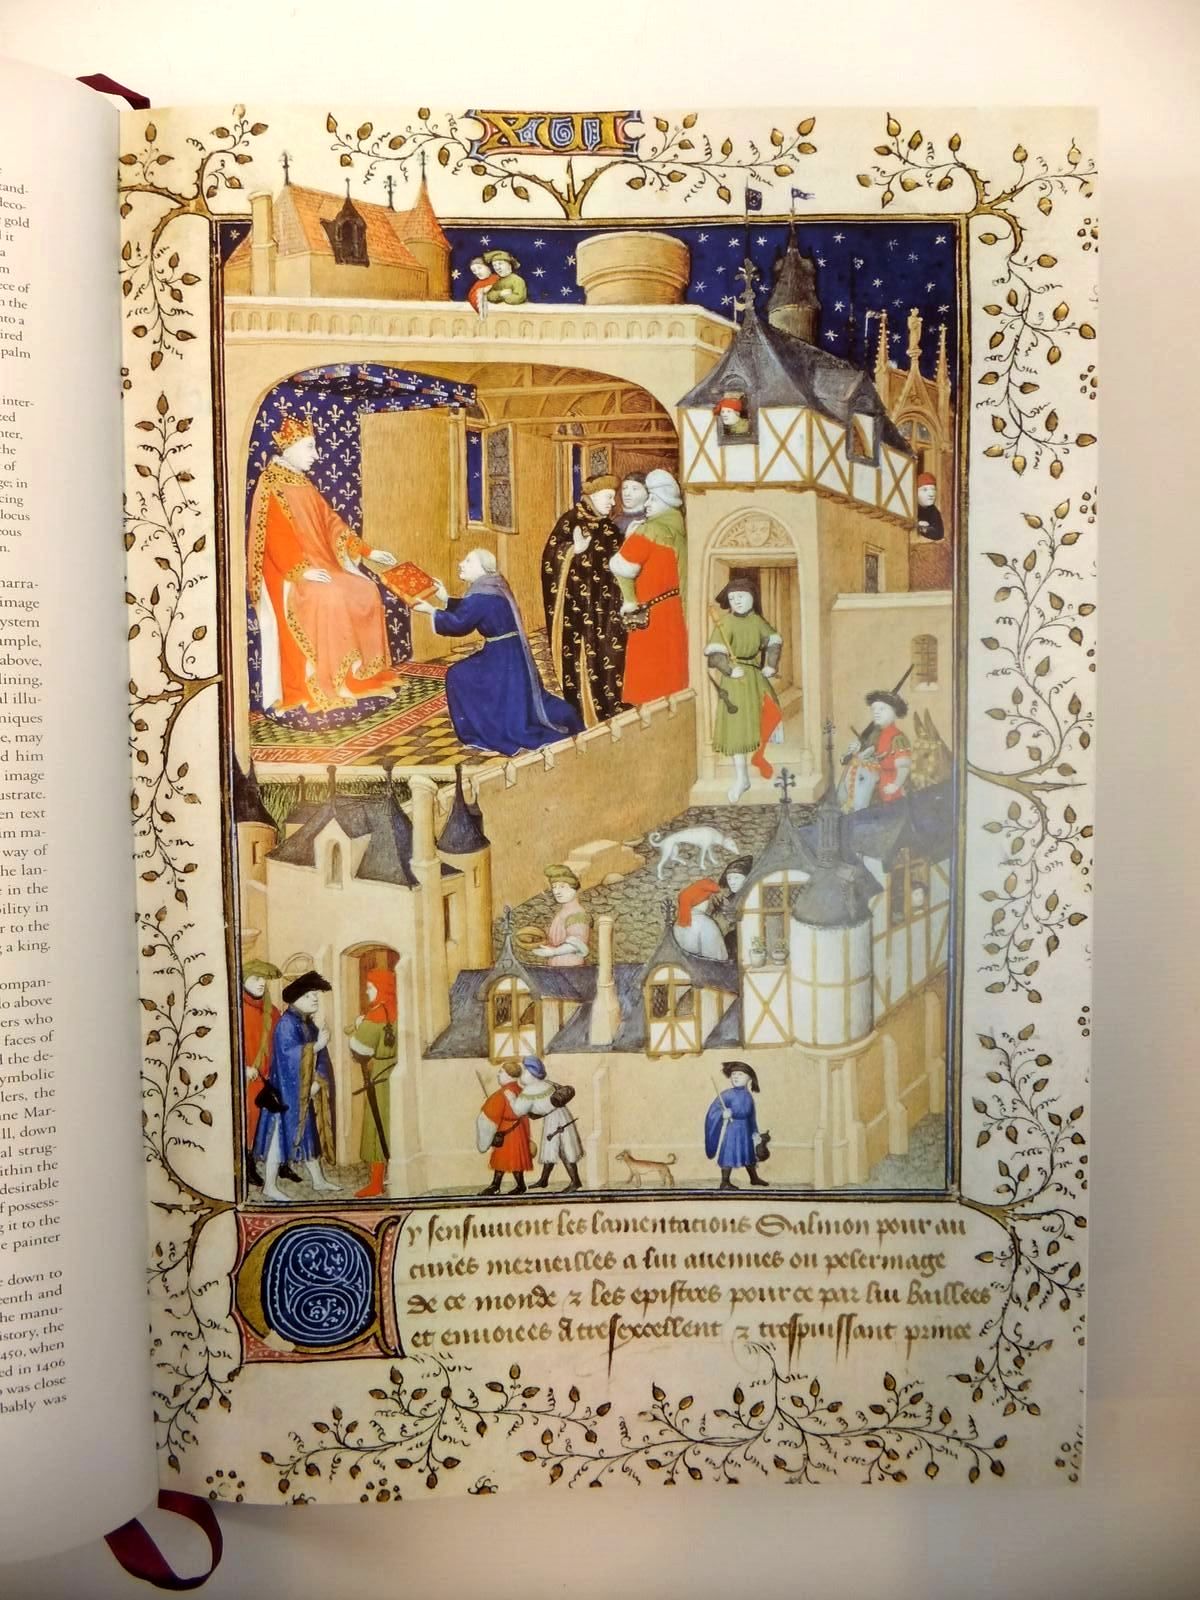 tand-
deco-
gold
it
a
m
ece of
n the
nto a
ired
palm
inter-
zed
nter,
the
of
ge; in
cing
locus
eous
n.
narra-
image
ystem
ample,
above,
lining,
al illu-
niques
e, may
d him
image
ustrate.
en text
im ma-
way of
he lan-
e in the
bility in
r to the
g a king.
ompan-
lo above
ers who
faces of
d the de-
ymbolic
lers, the
ane Mar-
ll, down
al strug-
ithin the
desirable
f possess-
g it to the
e painter
e down to
eenth and
he manu-
istory, the
450, when
ed in 1406
o was close
bably was
Cy sensuivent les lamentacions Salmon pour au
cunes merveilles a lui avenues ou pelerinage
de ce monde & les epistres pour ce par lui baillees
et envoiees A tresexcellent & trespuissant prince